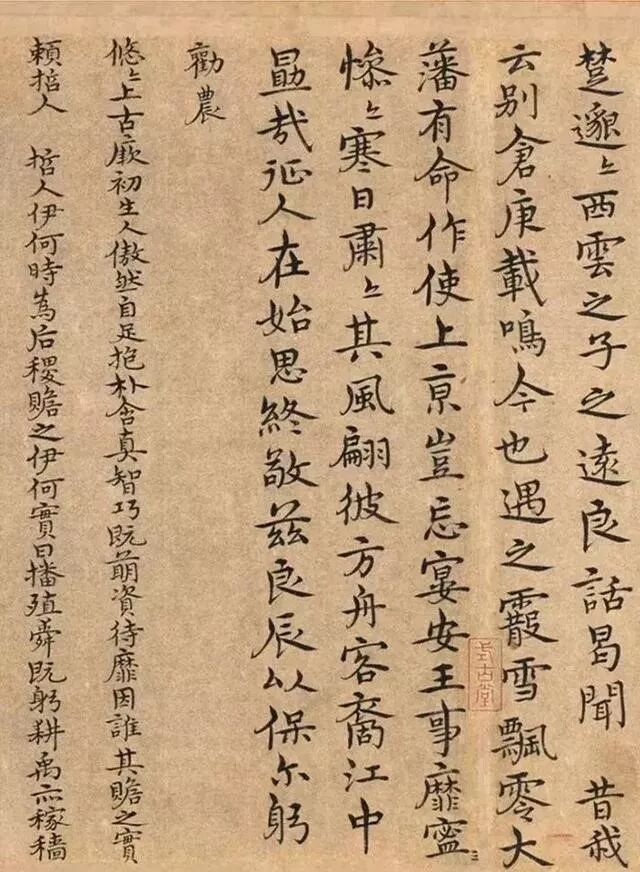 楚邈〻西雲之子之遠良話曷聞 昔我
云别倉庚載鳴今也遇之霰雪飄零大
藩有命作使上亰豈忘宴安王事靡寧〻
慘〻寒日肅〻其風翩彼方舟客裔江中
勗哉征人在始思終敬茲良辰以保尔躬
勸農
悠〻上古厥初生人傲然自足抱朴含真智巧既萌資待靡因誰其贍之實
賴哲人 哲人伊何時為后稷贍之伊何實曰播殖舜既躬耕禹亦稼穡
式古堂